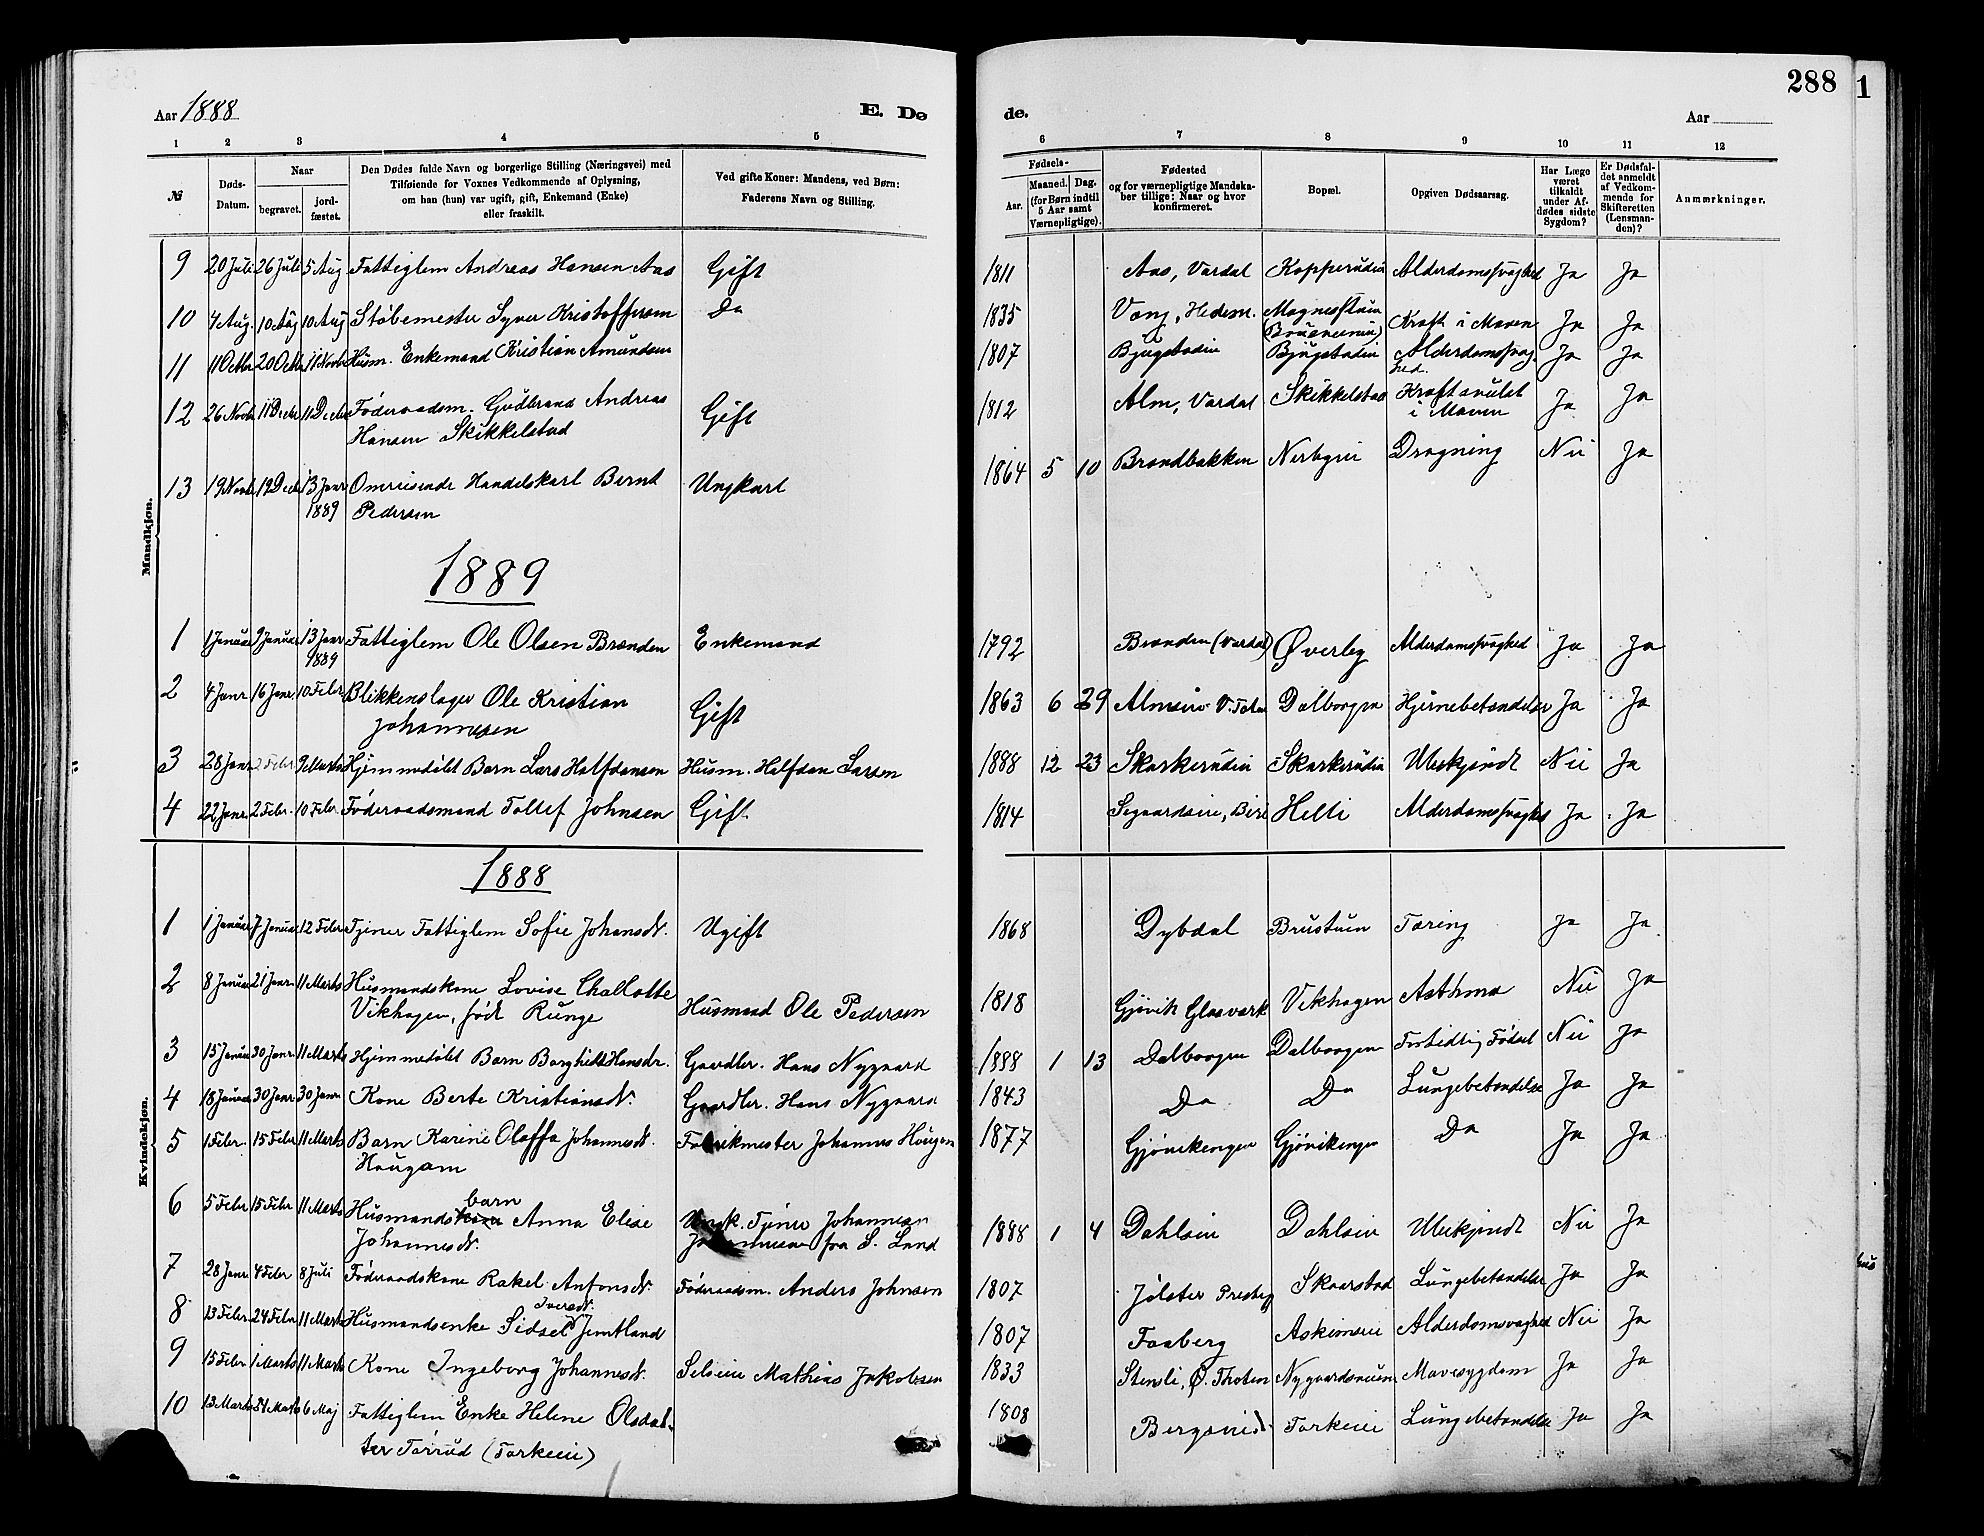 288
1
Aar 1888
E. Dø
de.
Aar
1 2 3 4 5 6 7 8 9 10 11 12
№
Døds-
Datum.
Naar
begravet.
jord-
fæstet.
Den Dødes fulde Navn og borgerlige Stilling (Næringsvei) med
Tilføiende for Voxnes Vedkommende af Oplysning,
om han (hun) var ugift, gift, Enkemand (Enke)
eller fraskilt.
Ved gifte Koner: Mandens, ved Børn:
Faderens Navn og Stilling.
Fødsels-
Aar.
Maaned. Dag.
(for Børn indtil
5 Aar samt
Værnepligtige).
Fødested
og for værnepligtige Mandska-
ber tillige: Naar og hvor
konfirmeret.
Bopæl.
Opgiven Dødsaarsag.
Har Læge
været
tilkaldt
under Af-
dødes sidste
Sygdom?
Er Dødsfal-
det anmeldt
af Vedkom-
mende for
Skifteretten
(Lensman-
den)?
Anmærkninger.
Mandkjøn.
9 20 Juli 26 Juli 5 Aug Fattiglem Andreas Hansen Aas Gift 1811 Aas, Vardal Kopperudei Alderdomssvaghed Ja Ja
10 4 Aug. 10 Aug 10 Aug Støbemester Syver Kristoffersen Do 1835 Vang, Hedem. Kræft i Maven Ja Ja
11 11 Octbr 20 Octbr 11 Novbr Husm. Enkemand Kristian Amundsen 1807 Bjugstadei Bjugstadei Alderdomssvag- Ja Ja
hed.
12 26 Novbr 11 Decbr 11 Decbr Føderaadsm. Gudbrand Andreas Gift 1812 Alm, Vardal Skikkelstad Kræftsvulst Ja Ja
Hansen Skikkelstad i Maven
13 19 Novbr 19 Decbr 13 Janr Omreisende Handelskarl Bernt Ungkarl 1864 5 10 Brandbakken Nerbyei Drugning Nei Ja
1889 Pedersen
1889
1 1 Januar 9 Januar 13 Janr Fattiglem Ole Olsen Brænden Enkemand 1792 Brænden (Vardal) Øverby Alderdomssvaghed Ja Ja
1889
2 4 Janr 16 Janr 10 Febr Blikkenslager Ole Kristian Gift 1863 6 29 Almseie V. Toten Dalborgen Hjernebetændelse Ja Ja
Johannesen
3 28 Janr 2 Febr 9 Marts Hjemmedøbt Barn Lars Halfdansen Husm. Halfdan Larsen 1888 12 23 Skarkerudei Skarkerudei Ubekjendt Nei Ja
4 22 Janr. 2 Febr. 10 Febr. Føderaadsmand Tollef Johnsen Gift 1814 Segaardseie, Biri Helti Alderdomssvaghed Ja Ja
Kvindekjøn.
1888
1 1 Januar 7 Januar 12 Febr Tjener Fattiglem Sofie Johansdt. Ugift 1868 Dybdal Brustuen Tæring Ja Ja
2 8 Januar 21 Janr. 11 Marts Husmandskone Lovise Challotte Husmand Ole Pedersen 1818 Gjøvik Glasværk Vikhagen Asthma Nei Ja
Vikhagen, født Runge
3 15 Januar 30 Janr. 11 Marts Hjemmedøbt Barn Borghild Hansdr. Gaardbr. Hans Nygaard 1888 1 13 Dalborgen Dalborgen Fortidlig Fødsel Nei Ja
4 18 Januar 30 Janr 30 Janr Kone Berte Kristiansdt. Gaardbr. Hans Nygaard 1843 Do Do Lungebetændelse Ja Ja
5 1 Febr. 15 Febr 11 Marts Barn Karine Oleffa Johannesdt. Fabrikmester Johannes Hougen 1877 Gjøvikengen Gjøvikengen Do Ja Ja
Hougom
6 5 Febr 15 Febr 11 Marts Husmandsbarn Anna Elise Ungk. Tjener Johannesen 1888 1 4 Dahlseie Dahlseie Ubekjendt Nei Ja
Johannesdt. fra S. Land
7 28 Janr 4 Febr 8 Juli Føderaadskone Rakel Anfonsdt. Føderaadsm. Anders Johnsen 1807 Jølster Prestg Skaarstad Lungebetændelse Ja Ja
8 13 Febr 24 Febr 11 Marts Husmandsenke Sidsel Iversdt. Jemtland 1807 Faaberg Askimseie Alderdomsvaghed Nei Ja
9 15 Febr 1 Marts 11 Marts Kone Ingeborg Johannesdt. Selveie Mathias Jakobsen 1833 Stensli, Ø. Thoten Mavesygdom Ja Ja
10 13 Marts 6 Maj Fattiglem Enke Helene Olsdat- 1808 Torkeiei Lungebetændelse Ja Ja
ter Torrud (Torkeiei)